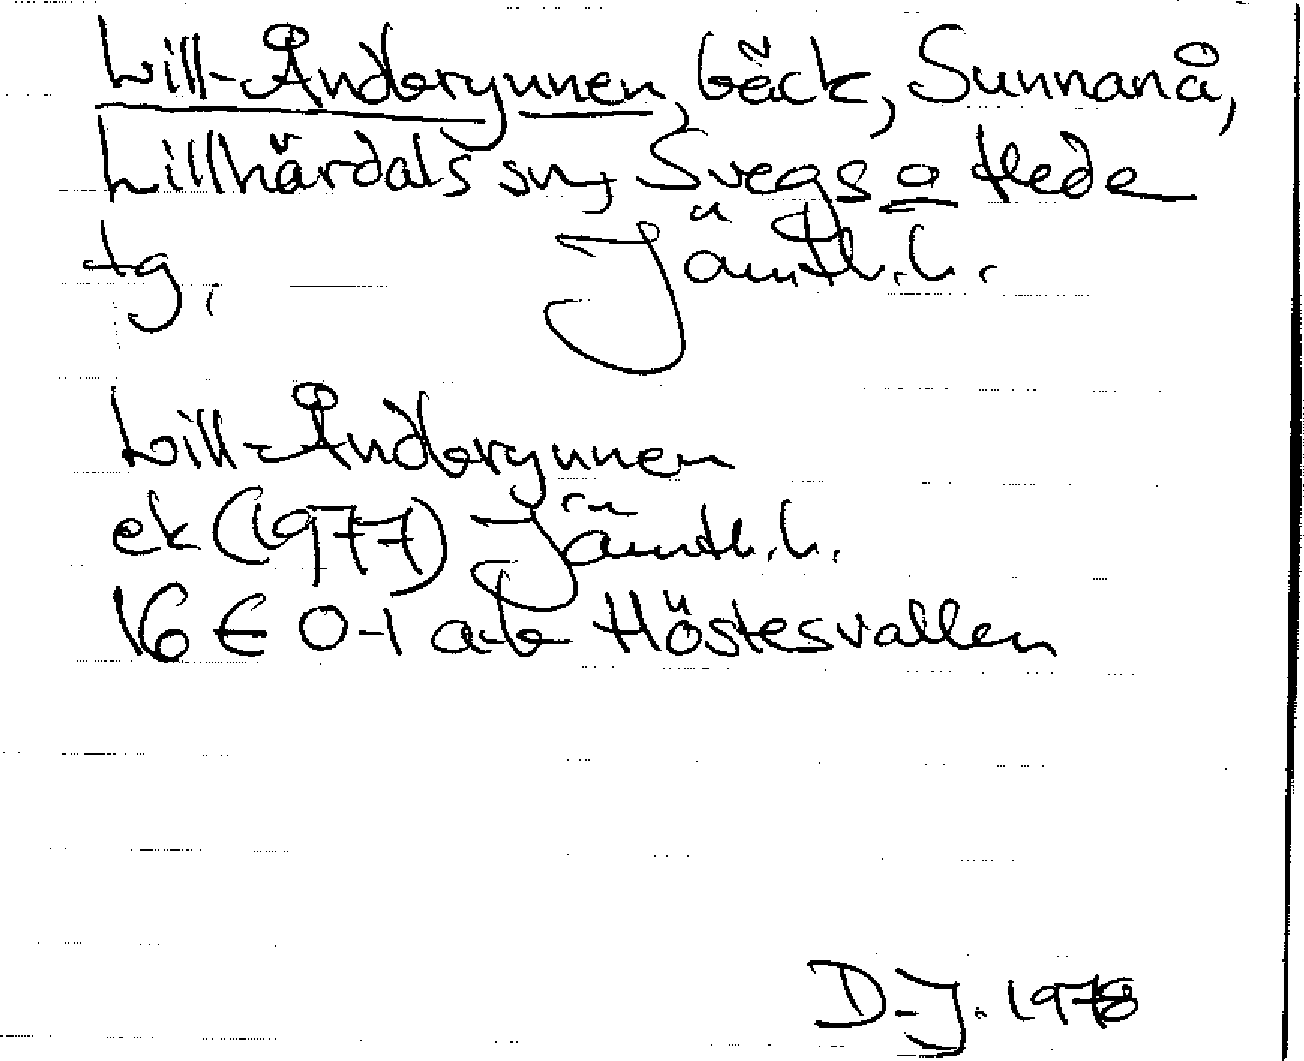 Lill-Åndbrynnen, bäck, Sunnanå,
Lillhärdals sn, Svegs o Hede
tg, Jämtl.l.
Lill-Åndbrynnen
ek (1977) Jämtl.l.
16 E 0-1 a-b Höstesvallen
D-J. 1978